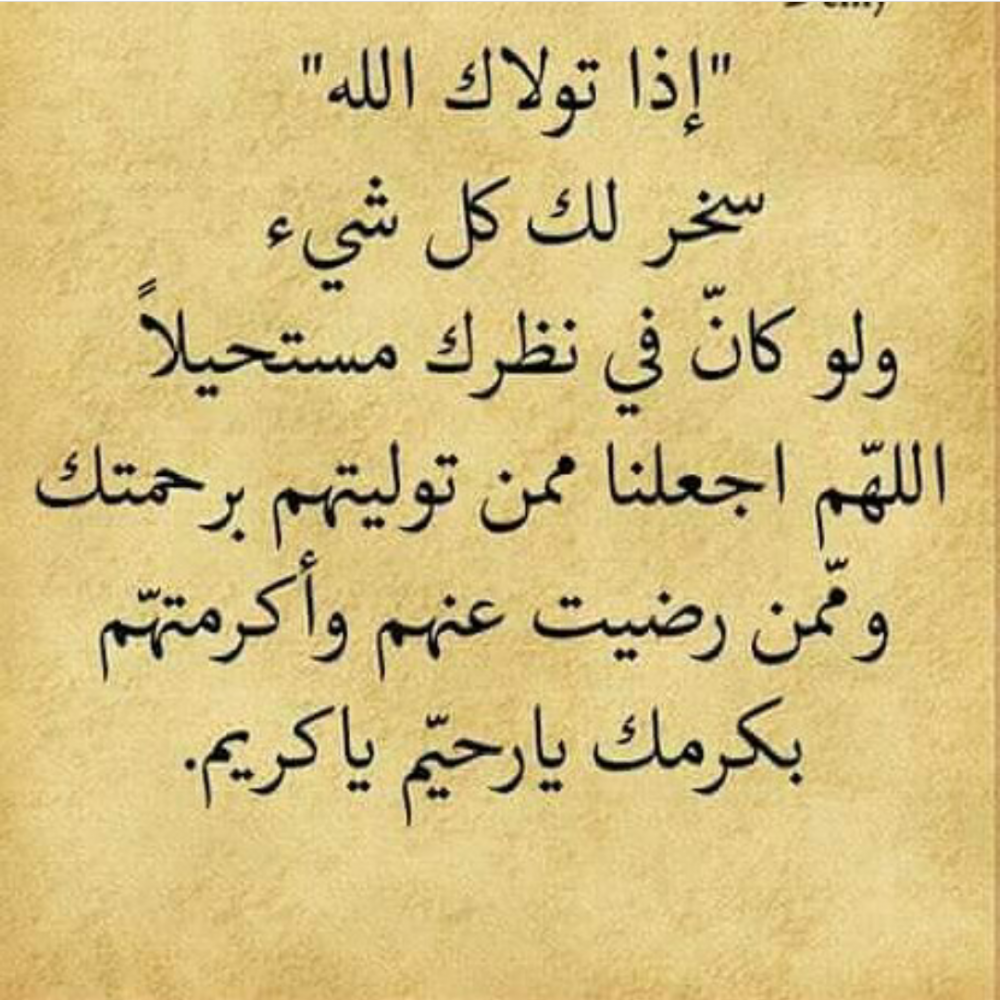 "إذا تولاك الله"
سخر لك كل شيء
ولو كانّ في نظرك مستحيلاً
اللهّم اجعلنا ممن توليتهم برحمتك
وممّن رضيت عنهم وأكرمتهّم
بكرمك يارحيّم ياكريم.